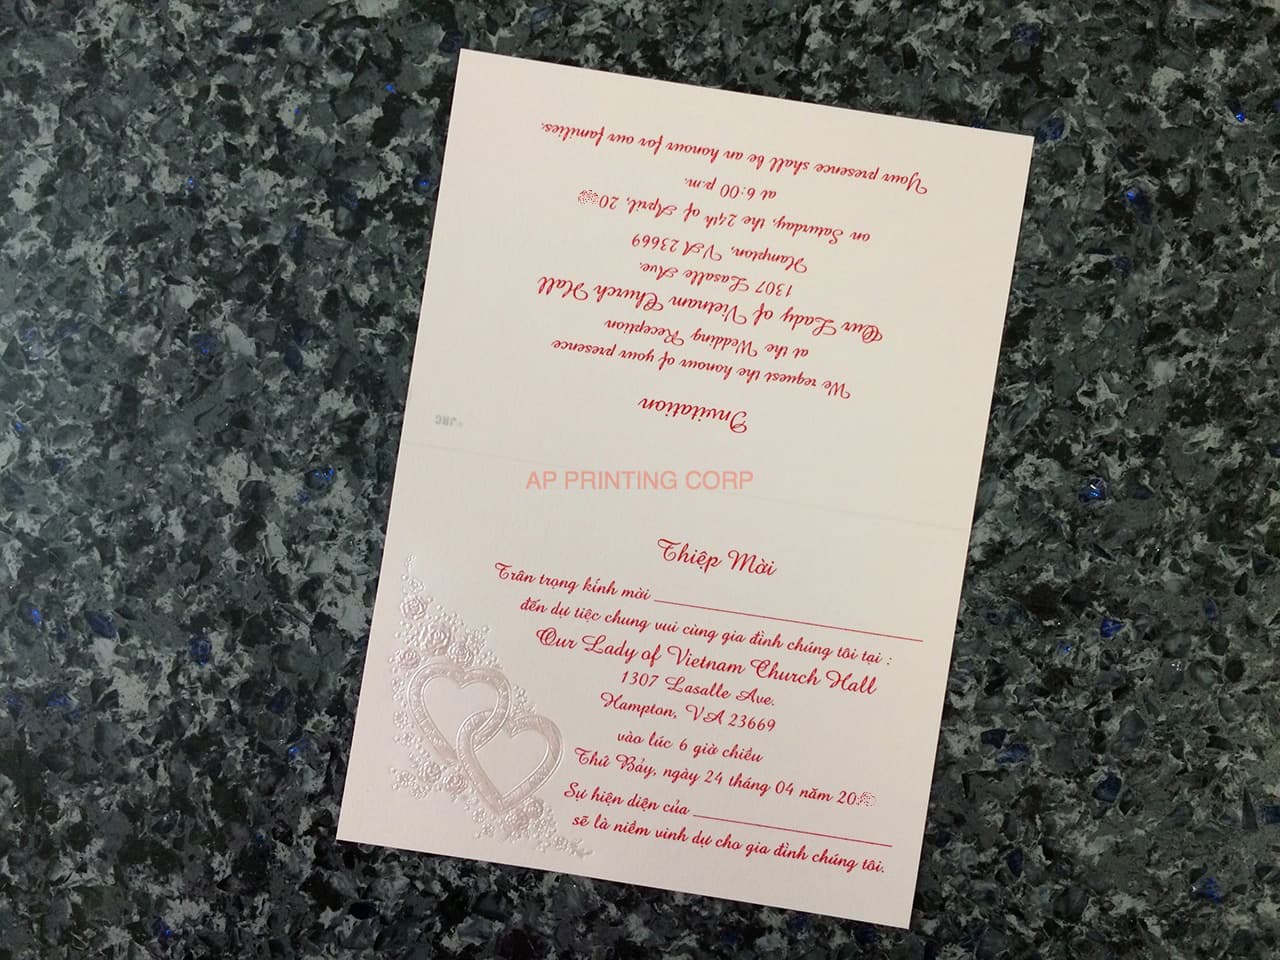 Invitation
We request the honour of your presence
at the Wedding Reception
Our Lady of Vietnam Church Hall
1307 Lasalle Ave.
Hampton, VA 23669
on Saturday, the 24th of April, 20
at 6:00 p.m.
Your presence shall be an honour for our families.
®JRC
AP PRINTING CORP
Thiệp Mời
Trân trọng kính mời
đến dự tiệc chung vui cùng gia đình chúng tôi tại :
Our Lady of Vietnam Church Hall
1307 Lasalle Ave.
Hampton, VA 23669
vào lúc 6 giờ chiều
Thứ Bảy, ngày 24 tháng 04 năm 20
Sự hiện diện của
sẽ là niềm vinh dự cho gia đình chúng tôi.